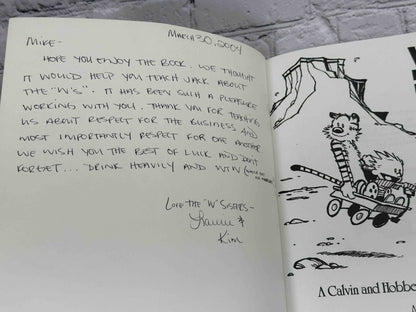 March 30, 2004
Mike-
Hope you enjoy the book. We thought
it would help you teach Jack about
the "W's". It has been such a pleasure
working with you. Thank you for teaching
us about respect for the business and
most importantly respect for one another
We wish you the best of luck and don't
forget... Drink heavily and win
Love the "W" Sisters-
&
Kim
A Calvin and Hobbe